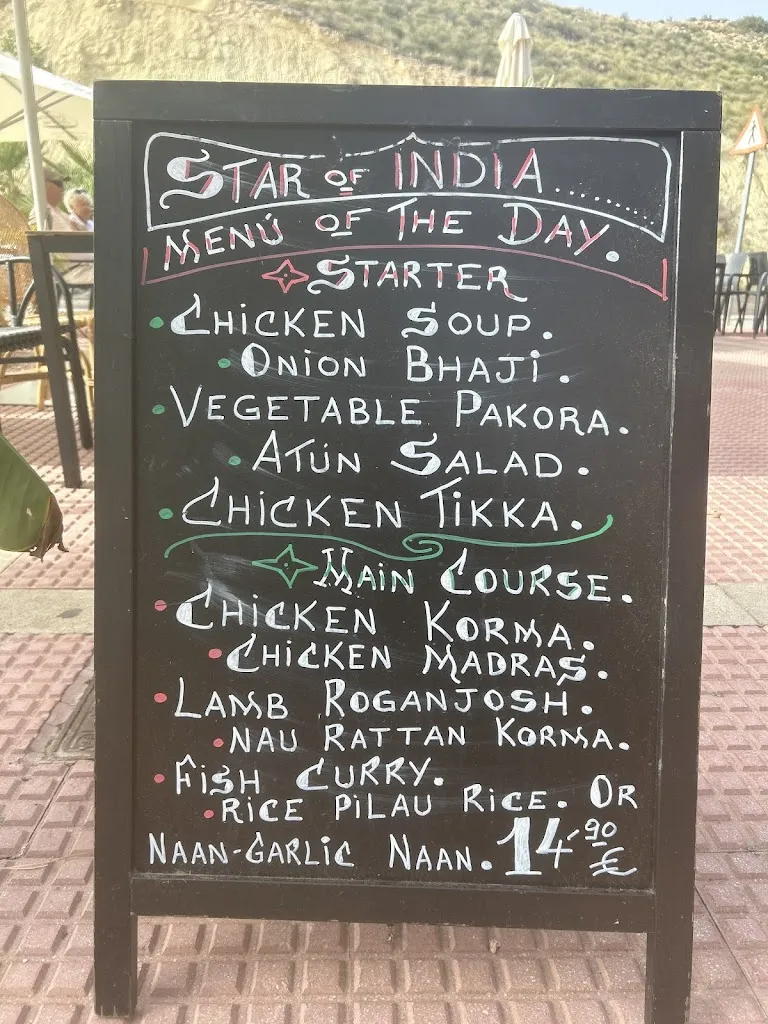 STAR OF INDIA..........
MENÚ OF THE DAY.
STARTER
CHICKEN SOUP.
ONION BHAJI.
VEGETABLE PAKORA.
ATÚN SALAD.
CHICKEN TIKKA.
MAIN COURSE.
CHICKEN KORMA.
CHICKEN MADRAS.
LAMB ROGANJOSH.
NAU RATTAN KORMA.
FISH CURRY.
RICE PILAU RICE. OR
NAAN-GARLIC NAAN. 14'90 €